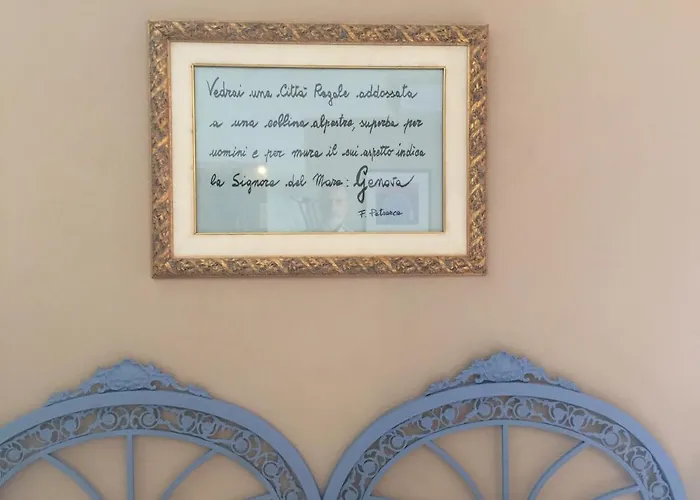 Vedrai una Città Regale addossata
a una collina alpestre, superba per
uomini e per mura il cui aspetto indica
la Signora del Mare: Genova
F. Petrarca